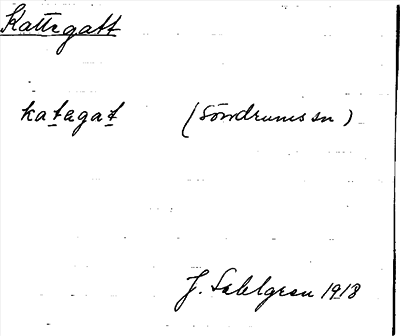 Kattegatt
katagat (Söndrums sn)
J. Sahlgren 1918